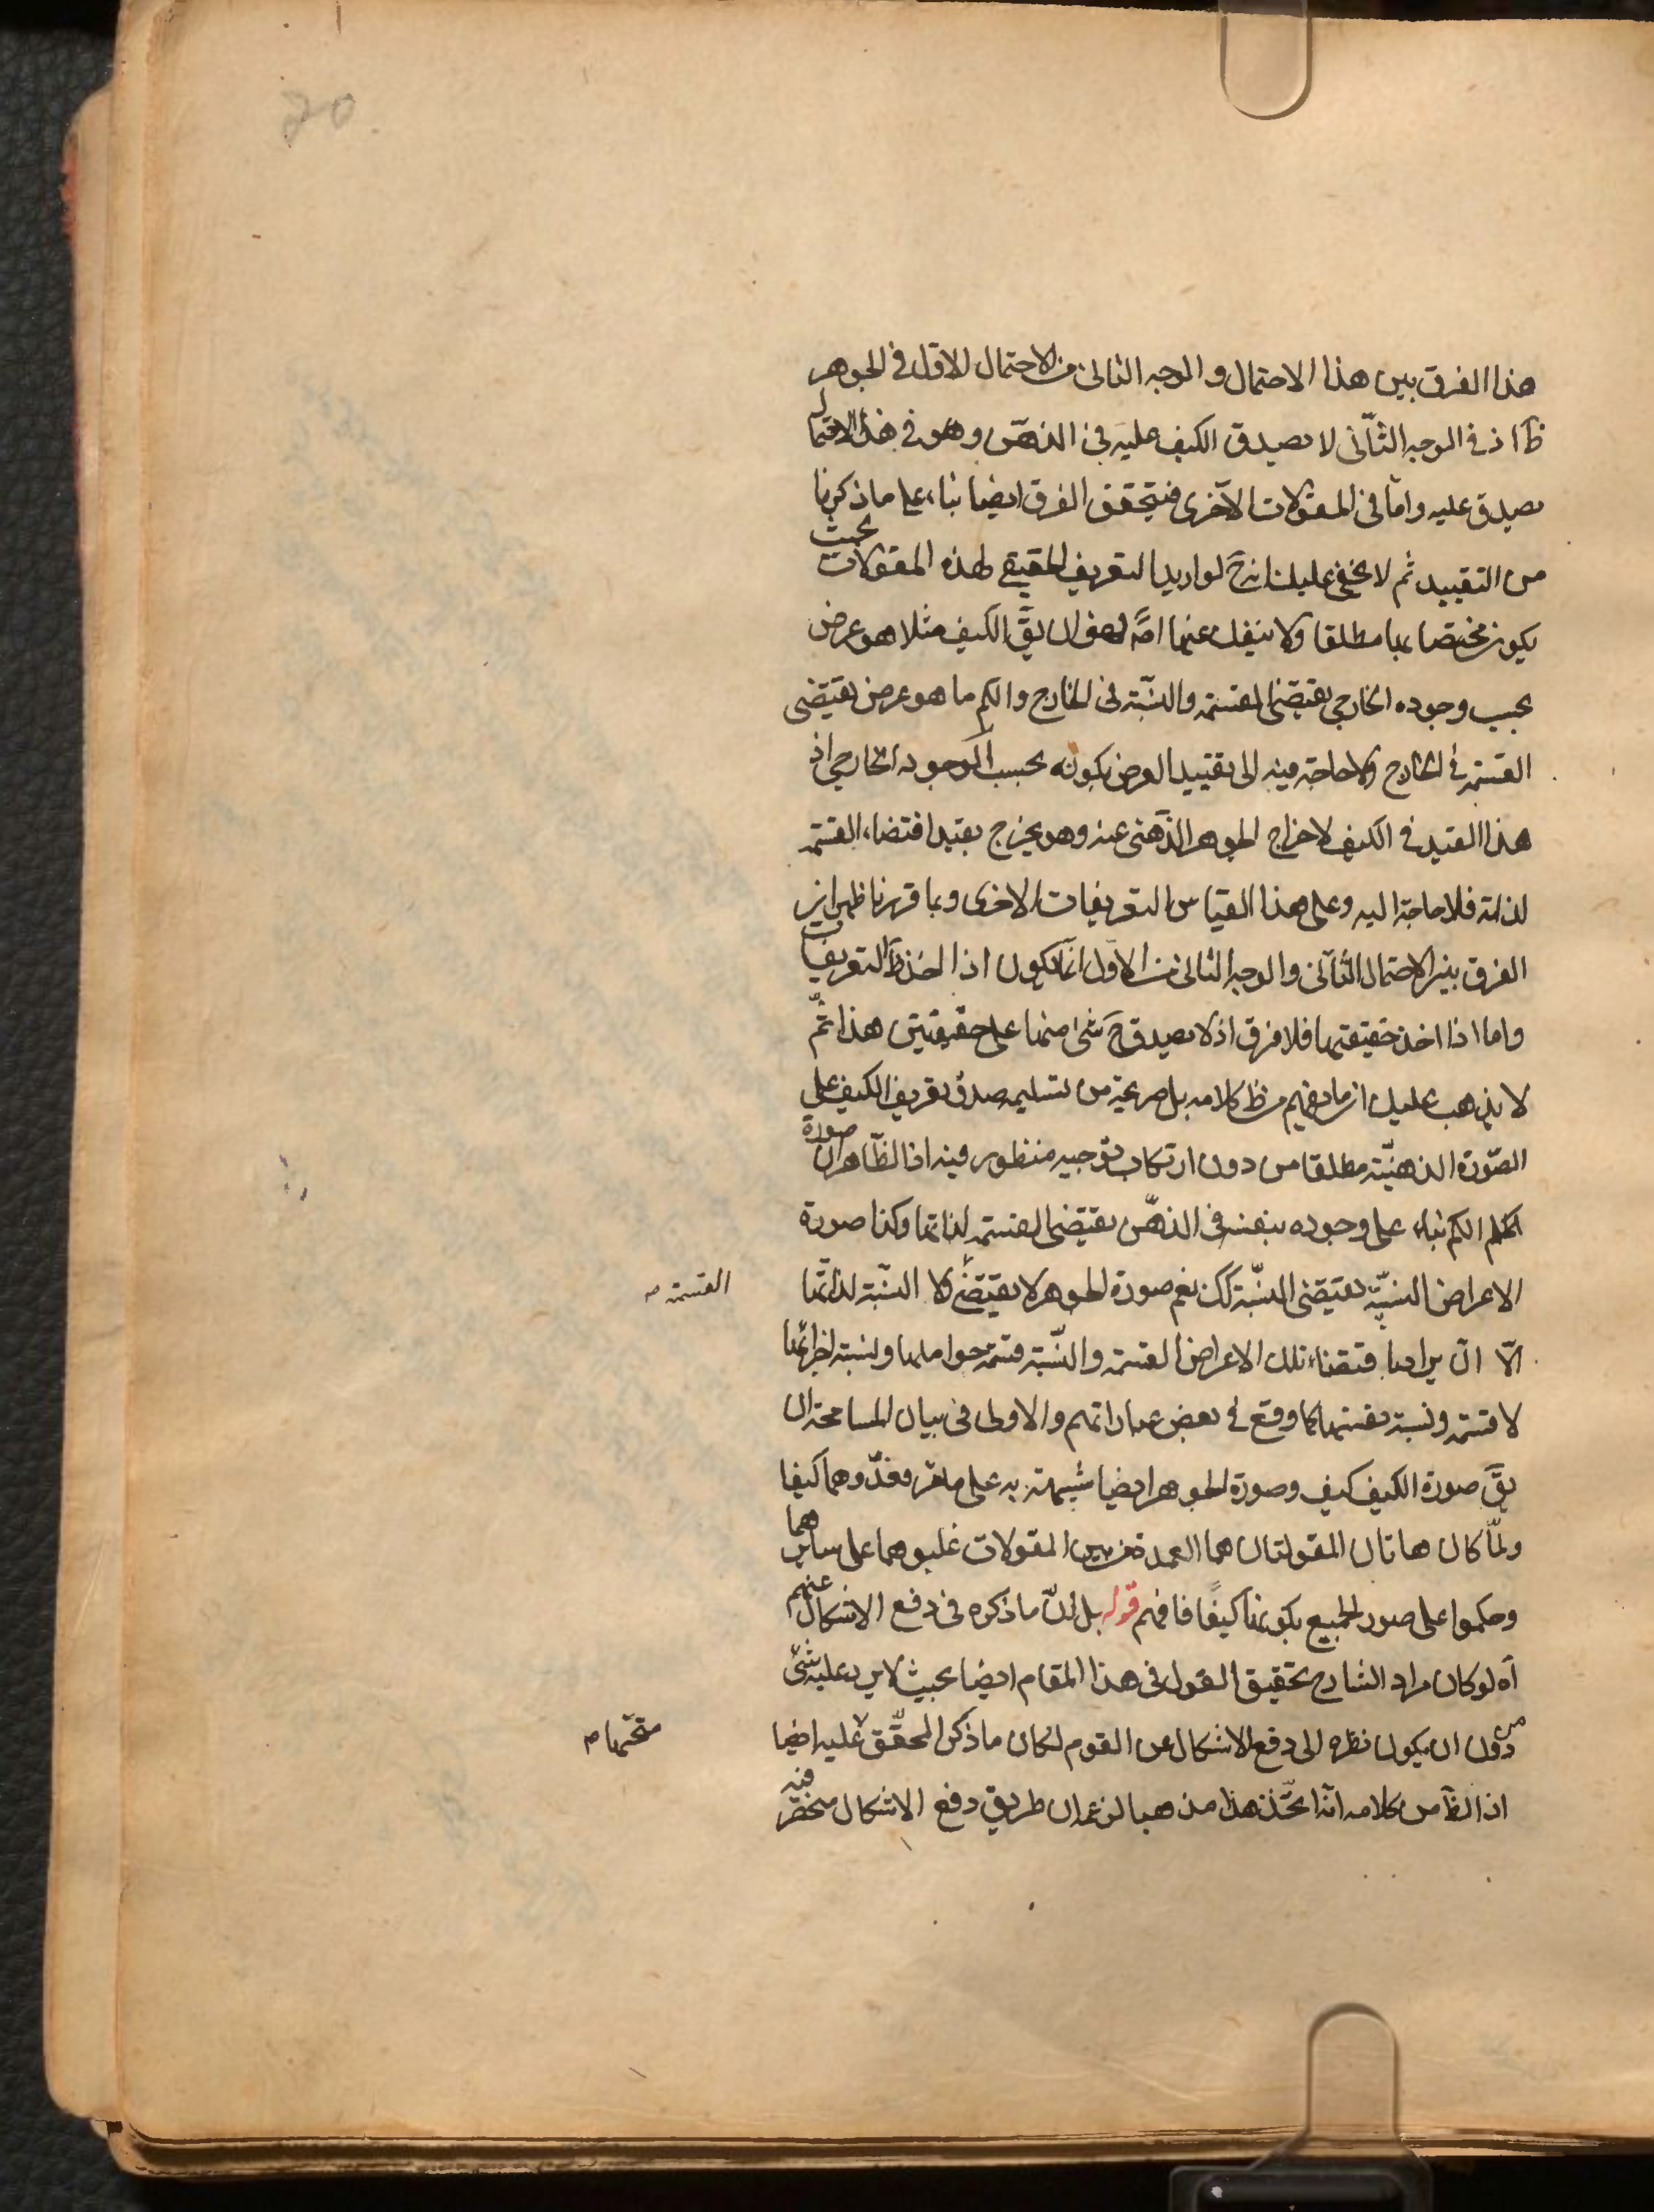 20
هذا الفرق بين هذا الاحتمال و الوجه الثانى من الاحتمال الاول فى الجوهر
ظ اذ فى الوجه الثانى لا يصدق الكيف عليه فى الذهن و هو فى هذا الاحتمال
يصدق عليه و امّا فى المقولات الاخرى فيتحقق الفرق ايضا بناء على ما ذكرنا
من التقييد ثم لا يخفى عليك انه ح لو اريد التعريف الحقيقى لهذه المقولات بحيث
يكون مختصا بها مطلقا ولا ينفك عنها اصّ فهو ان يقّ الكيف مثلا هو عرض
بحسب وجوده الخارجى يقتضى القسمة والنسبة فى الخارج والكم ما هو عرض يقتضى
القسمة فى الخارج ولا حاجة فيه الى تقييد العرض بكونه بحسب الوجود الخارجى اذ
هذا القيد فى الكيف لاخراج الجوهر الذهنى عنه وهو يخرج بقيد اقتضاء القسمة
لذاته فلا حاجة اليه وعلى هذا القياس التعريفات الاخرى وبما قررنا ظهر انه
الفرق بين الاحتمال الثانى والوجه الثانى من الاول انما يكون اذا اخذ ظ التعريفات
واما اذا اخذ حقيقتها فلا فرق اذ لا يصدق ح شئ منها على حقيقتين هذا ثمّ
لا يذهب عليك ان ما يفهم من ظ كلامه بل صريحه من تسليم صدق تعريف الكيف على
الصّورة الذهنيّة مطلقا من دون ارتكاب توجيه منظور فيه اذ الظّاهر ان صورة
الكم بناء على وجوده بنفسه فى الذهن يقتضى القسمة لذاتها وكذا صورة
الاعراض النسبيّة يقتضى النسبة كك نعم صورة الجوهر لا يقتضى ولا النسبة لذاتها
القسمة ص
الّا ان يراد باقتضاء تلك الاعراض القسمة والنسبة قسمة حواملها ونسبة اجزائها
لا قسمة ونسبة نفسها كما وقع فى بعض عباراتهم والاولى فى بيان المسامحة ان
يقّ صورة الكيف كيف وصورة الجوهر ايضا شبيهة به على ما مر فعدّوهما كيفا
ولمّا كان هاتان المقولتان هما العمدة من بين المقولات غلبوهما على سايرها
وحكموا على صور الجميع بكونها كيفًا فافهم قوله بل لانّ ما ذكره فى دفع الاشكال عنهم
آه لو كان مراد الشارح تحقيق القول فى هذا المقام ايضا بحيث لا يرد عليه شئ
من دون ان يكون نظره الى دفع الاشكال عن القوم لكان ما ذكر المحقّق عليه ايضا
متّجها م
اذ الظ من كلامه انه اتخذ هذا مذهبا لزعمه ان طريق دفع الاشكال منحصر فيه